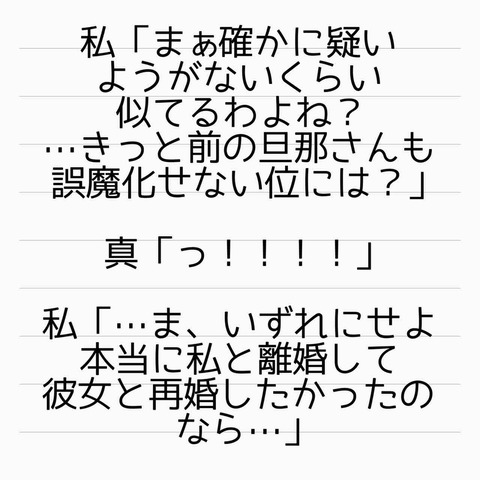 私「まぁ確かに疑い
ようがないくらい
似てるわよね？
…きっと前の旦那さんも
誤魔化せない位には？」
真「っ！！！！」
私「…ま、いずれにせよ
本当に私と離婚して
彼女と再婚したかったの
なら…」